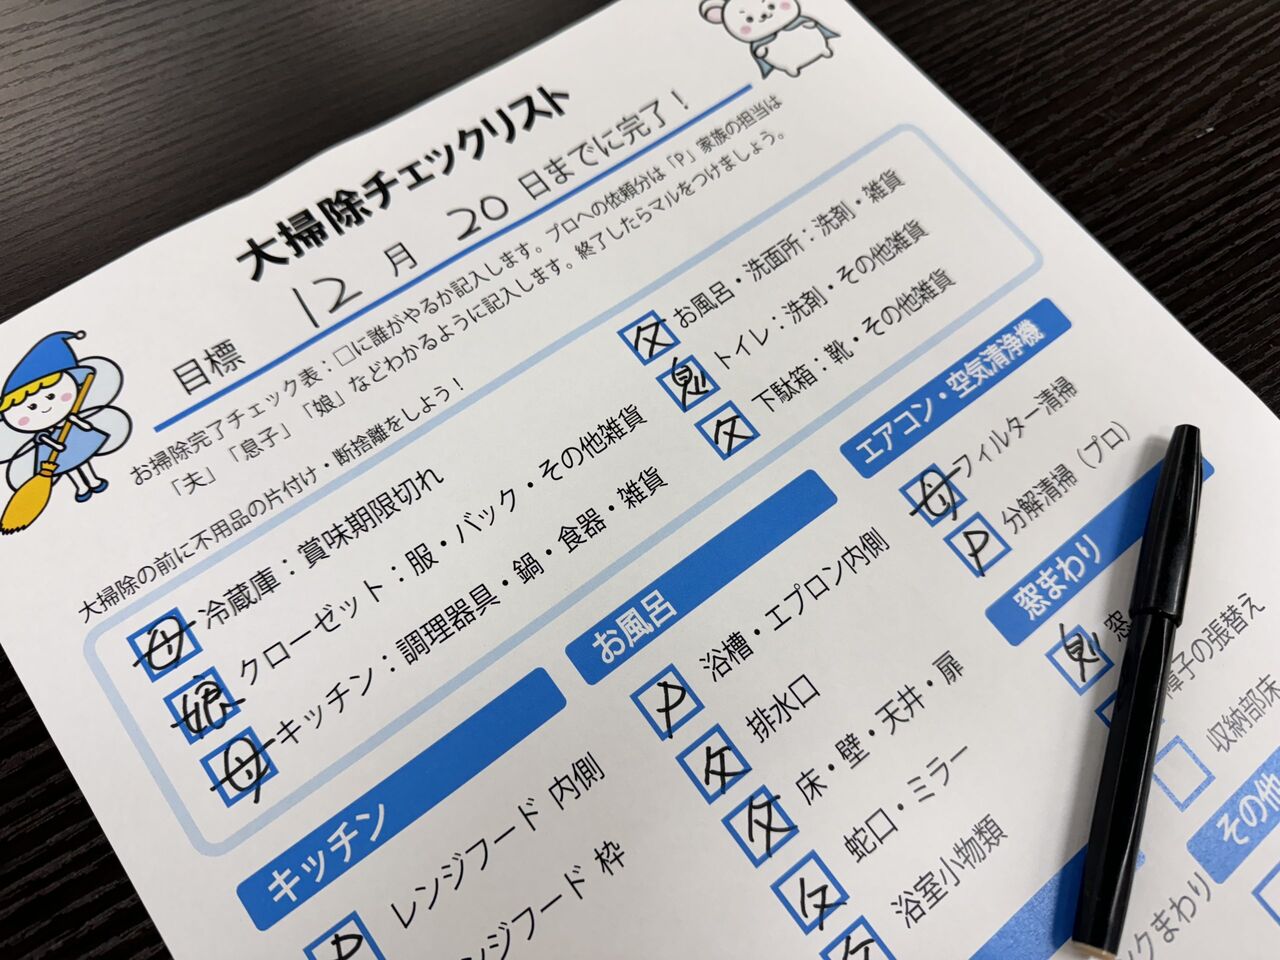 大掃除チェックリスト
目標 12 月 20 日までに完了！
お掃除完了チェック表：□に誰がやるか記入します。プロへの依頼分は「P」家族の担当は
「夫」「息子」「娘」などわかるように記入します。終了したらマルをつけましょう。
大掃除の前に不用品の片付け・断捨離をしよう！
母 冷蔵庫：賞味期限切れ
娘 クローゼット：服・バック・その他雑貨
母 キッチン：調理器具・鍋・食器・雑貨
父 お風呂・洗面所：洗剤・雑貨
トイレ：洗剤・その他雑貨
父 下駄箱：靴・その他雑貨
キッチン
P レンジフード 内側
ンジフード 枠
お風呂
P 浴槽・エプロン内側
父 排水口
父 床・壁・天井・扉
父 蛇口・ミラー
浴室小物類
エアコン・空気清浄機
母 フィルター清掃
P 分解清掃（プロ）
窓まわり
窓
障子の張替え
収納部床
その他
クまわり